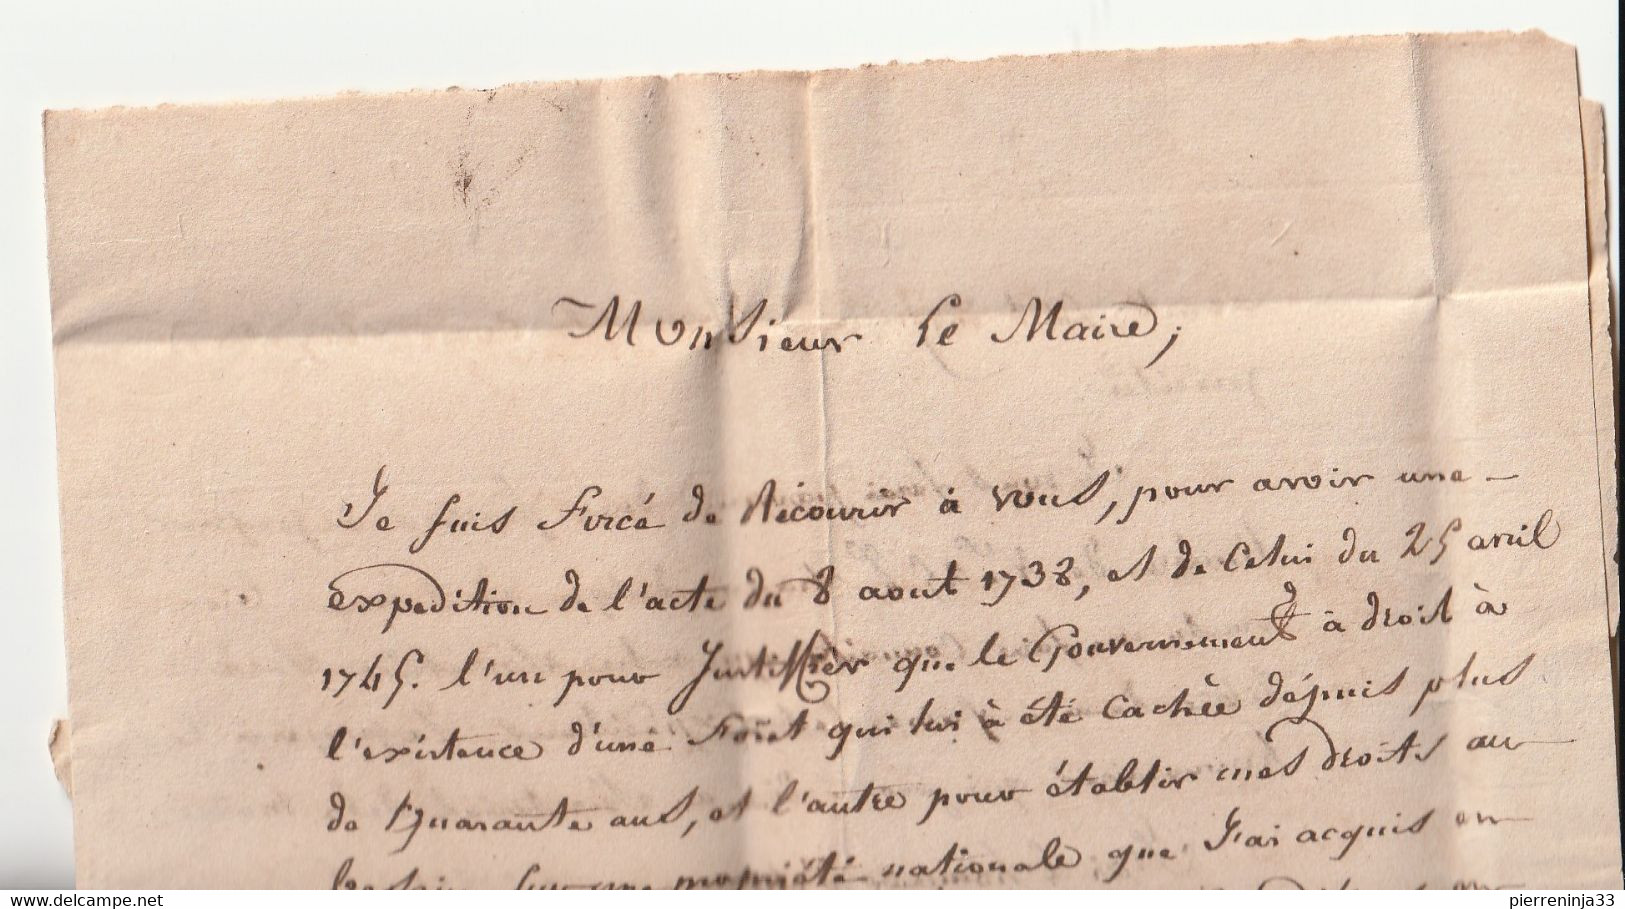 Monsieur Le Maire,
Je suis Forcé de Récourir à vous, pour avoir une
expedition de l'acte du 8 aout 1738, et de Celui du 25 avril
1745. l'un pour Justiffièr que le Gouvernement à droit à
l'existence d'une Foret qui lui à été Cachèe dépuis plus
de Quarante ans, et l'autre pour établir mes droits au
besoin sur une propriété nationale que J'ai acquis en
www.delcampe.net
pierreninja33